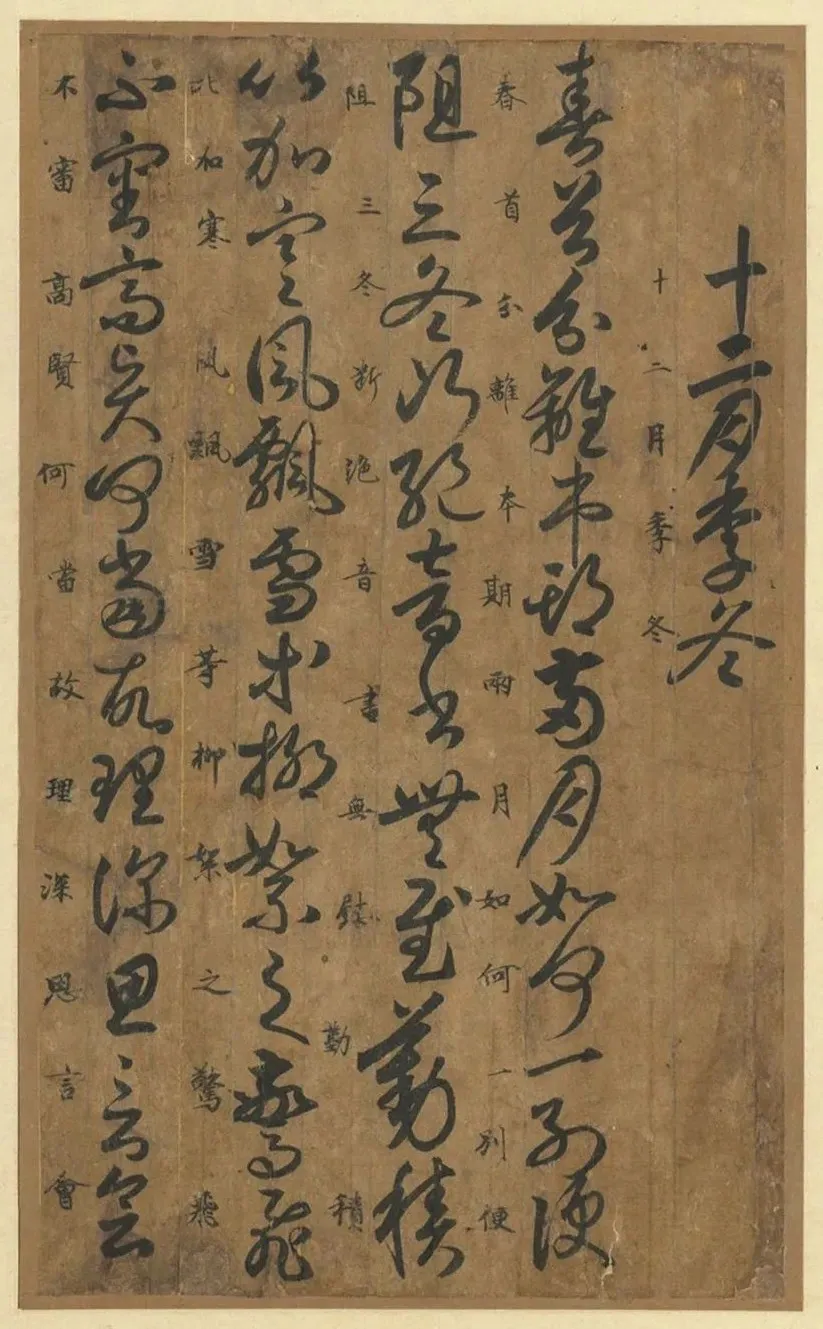 十二月季冬
十二月季冬
春首分離本期兩月如何一別便
春首分離本期兩月如何一別便
阻三冬断絶音書無慰勤積
阻三冬断絶音書無慰勤積
比加寒風飄雪等柳絮之驚飛
比加寒風飄雪等柳絮之驚飛
不審高賢何當故理深思言會
不審高賢何當故理深思言會